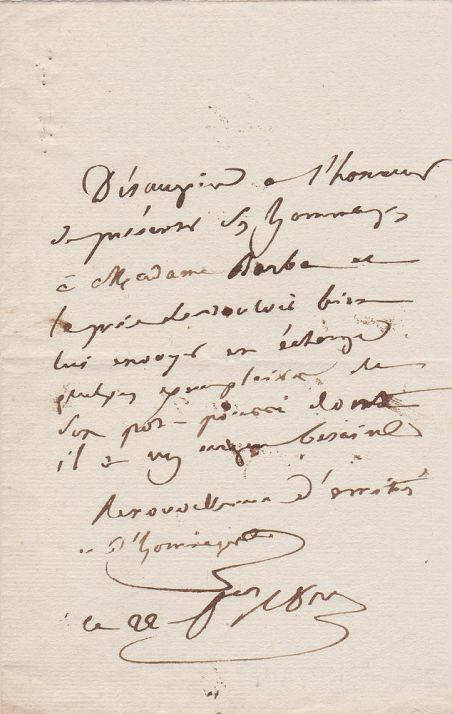 Désaugiers a l'honneur
de présenter ses hommages
à Madame Barba et
la prie de vouloir bien
lui envoyer en échange
quelques exemplaires de
son pot-pourri dont
il a un urgent besoin
Renouvellement d'amitiés
et d'hommages
ce 22